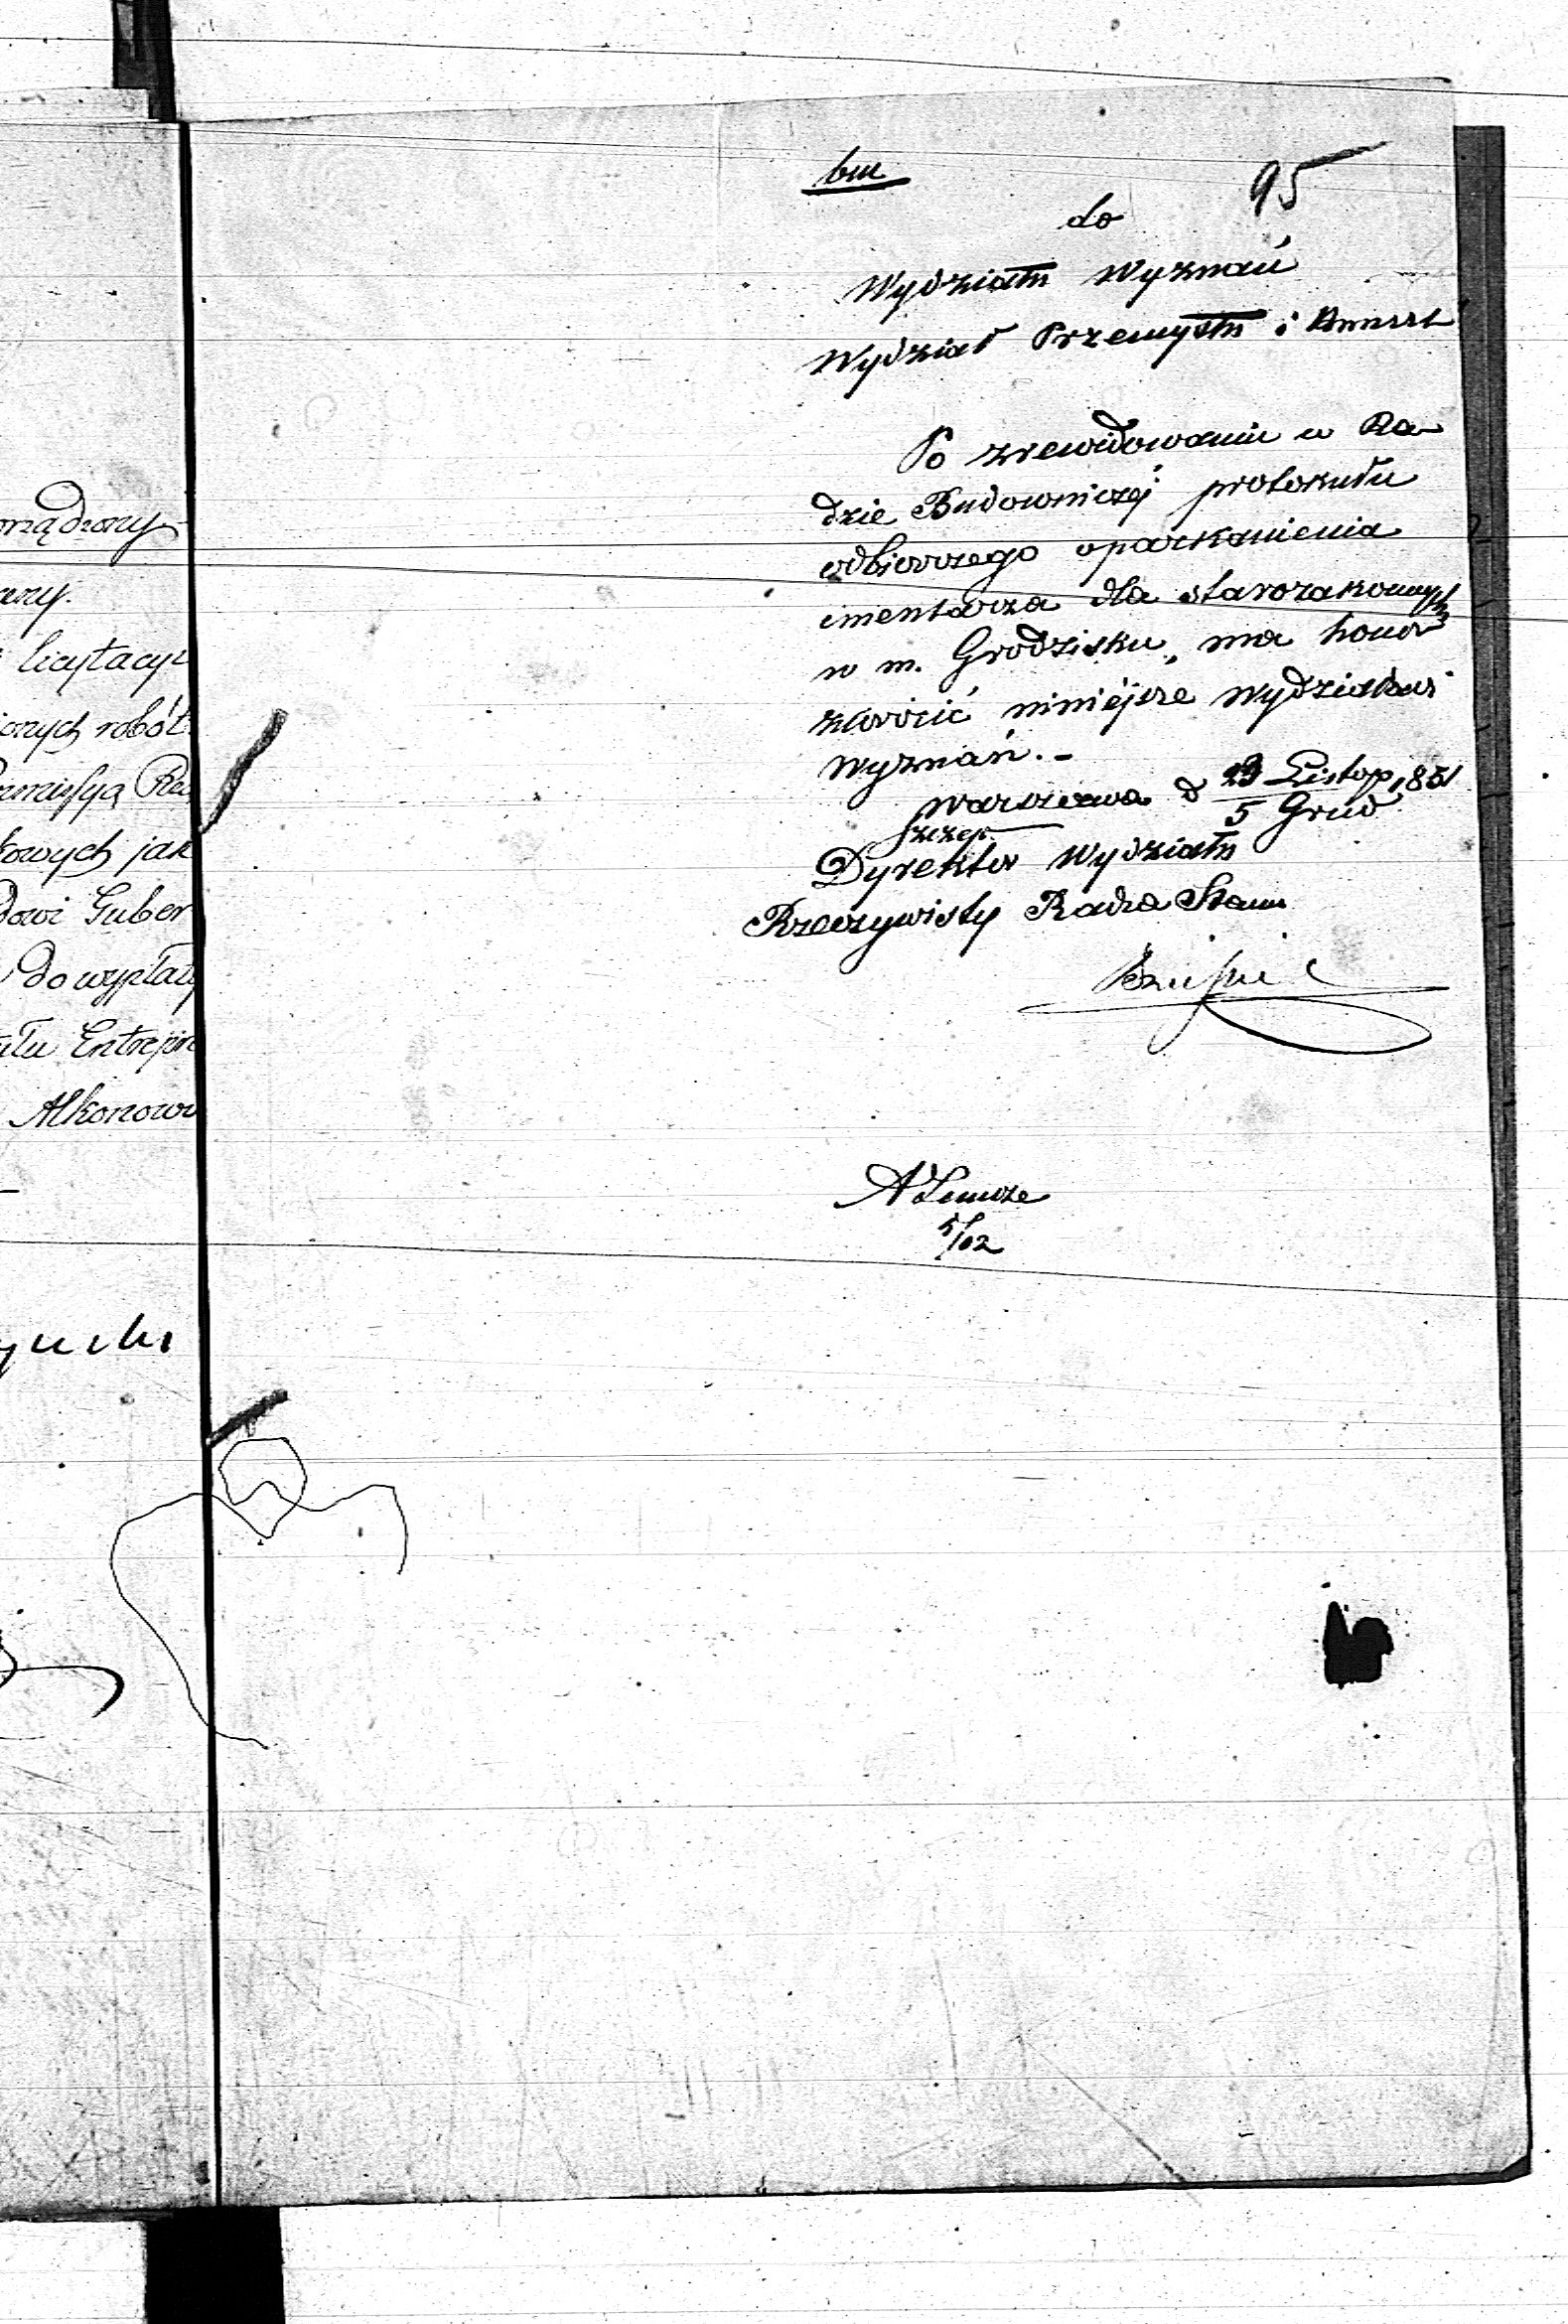 orządzony
any.
licytacyi
ionych robót
Kommissyą Rz
kowych jak
dowi Guber
do wypłaty
ułu Entrepr
Alkonow
bm
95
do
Wydziału Wyznań
Wydział Przemysłu i Kunszt
Po zrewidowaniu w Ra-
dzie Budowniczéj protokułu
odbiorczego oparkanienia
cmentarza dla starozakonnych
w m. Grodzisku, ma honor
zwrócić niniéjsze Wydziałowi
Wyznań. -
Warszawa d 23 Listop 1851
5 Grud
Dyrektor Wydziału
Rzeczywisty Radca Stanu
5/12